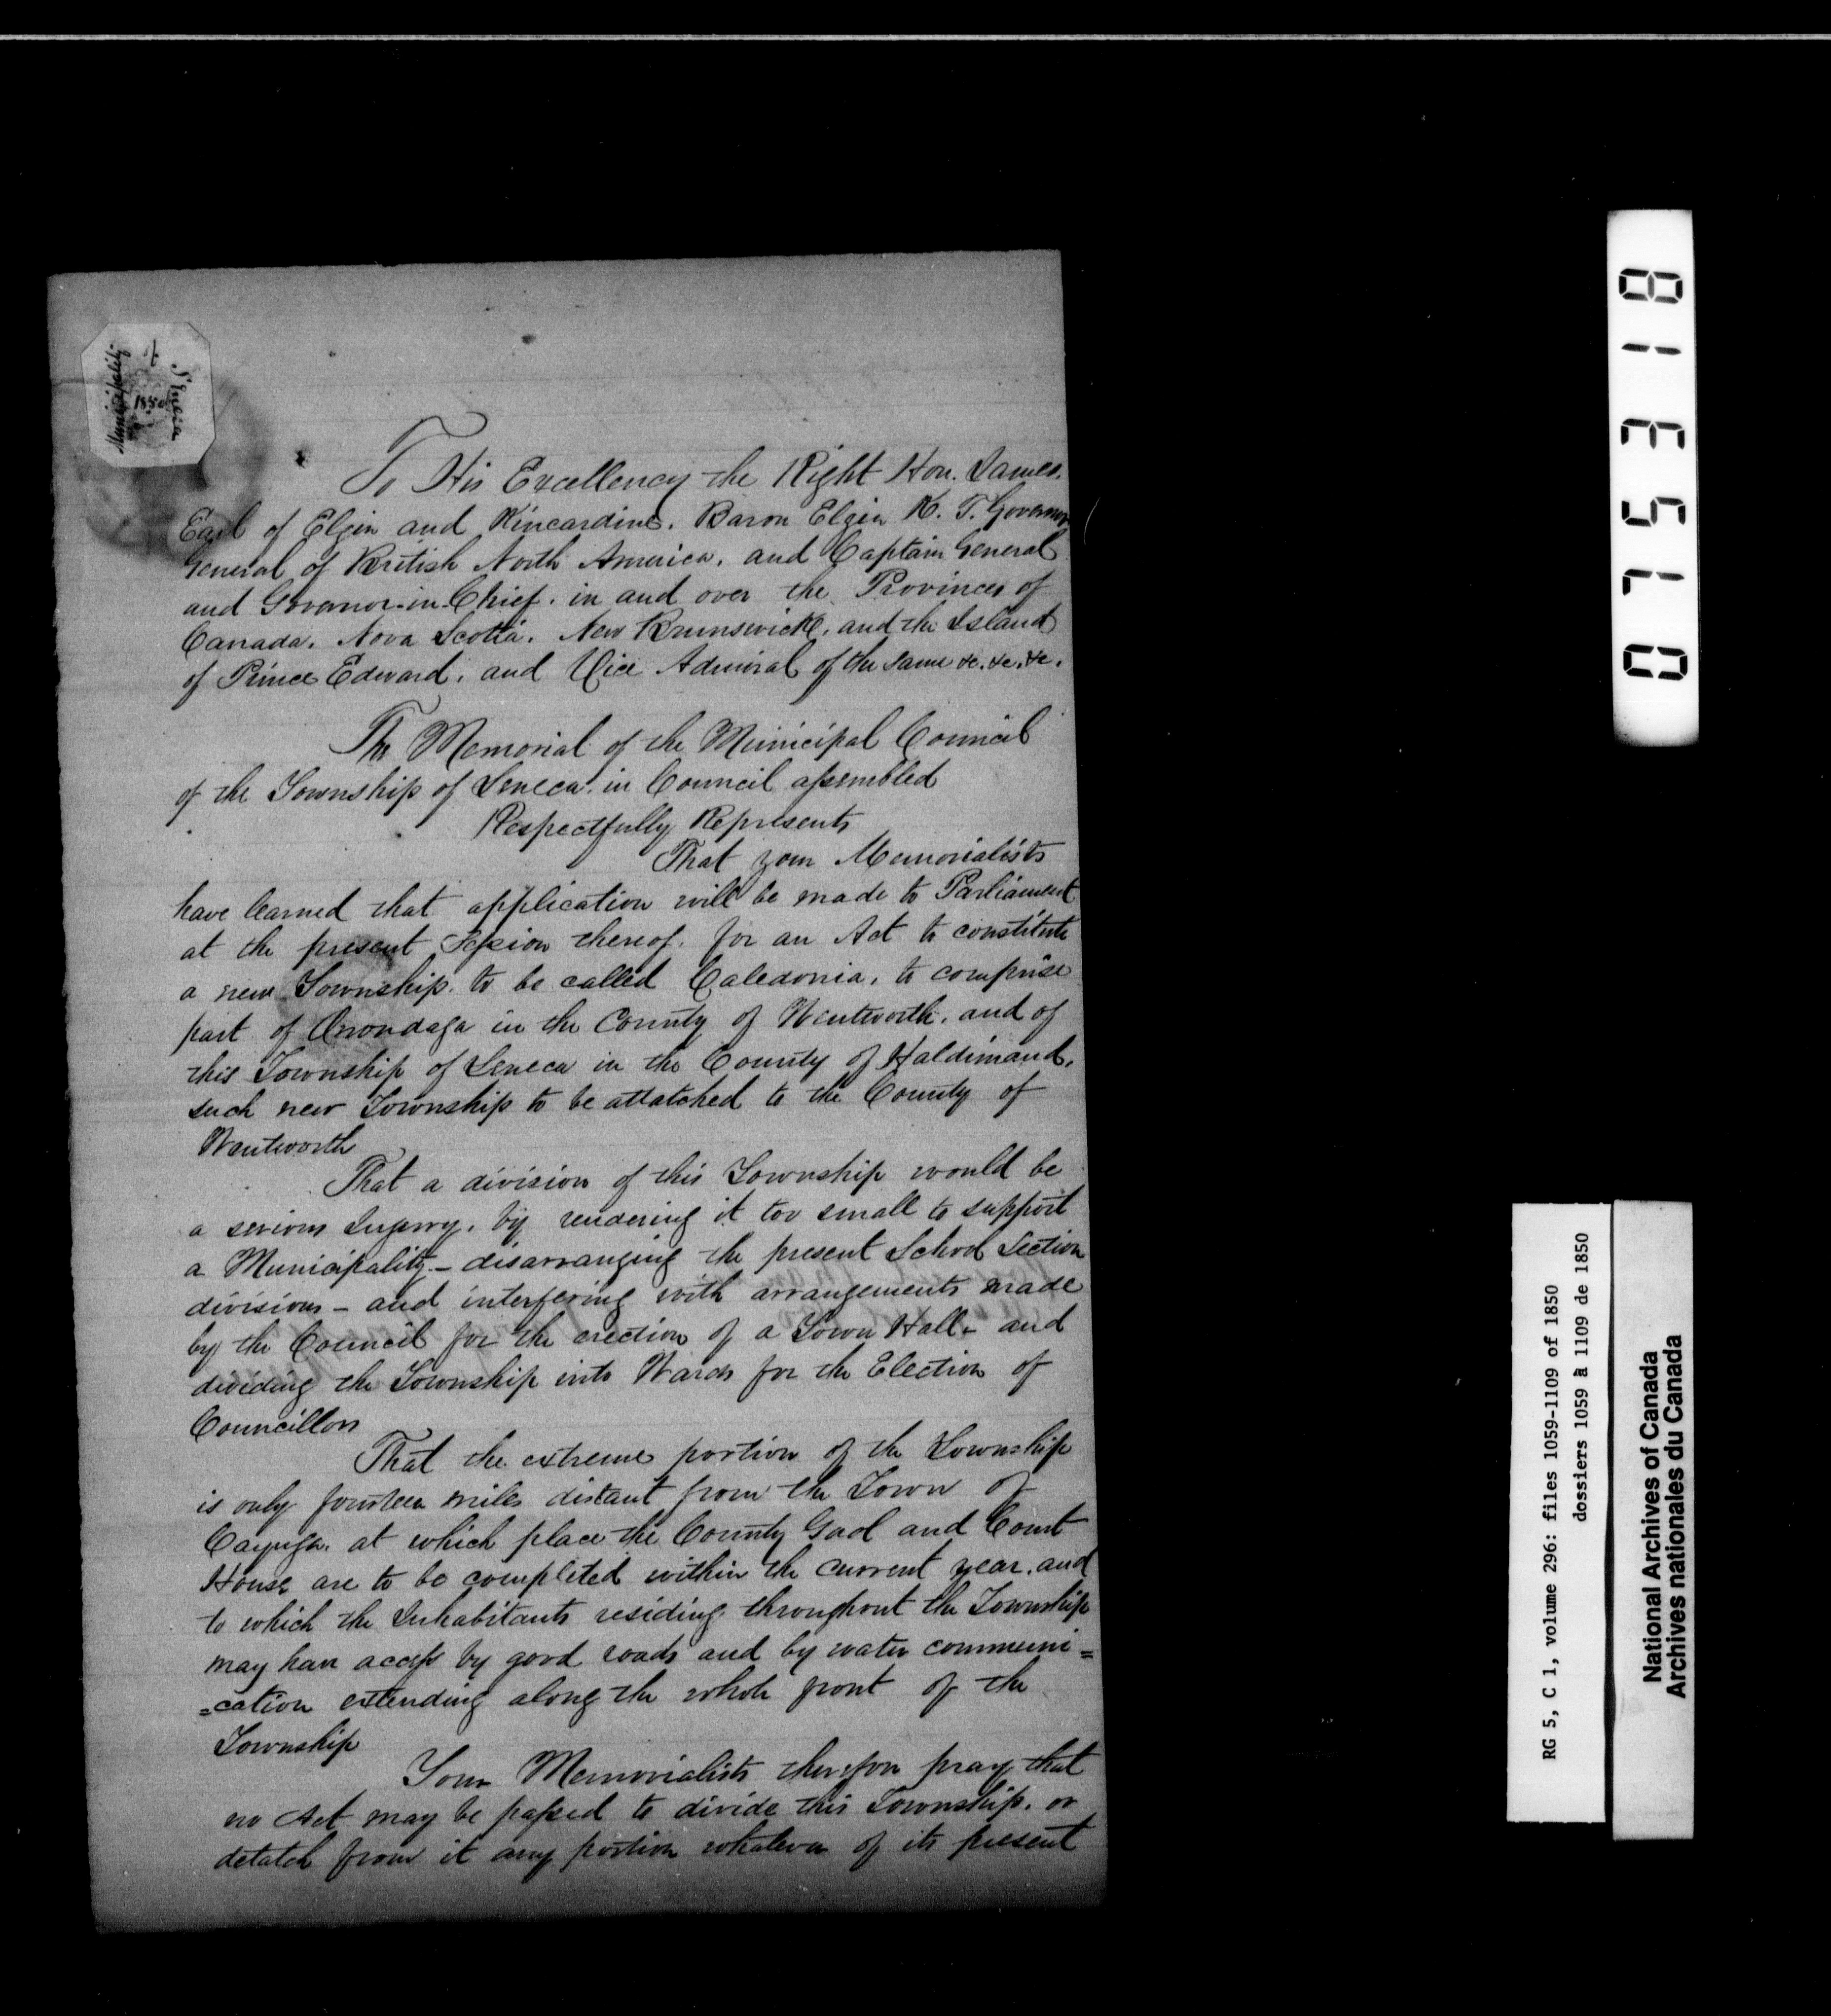 Municipality
of
1850
Seneca
To His Excellency the Right Hon. James.
Earl of Elgin and Kincardine. Baron Elgin K. T. Governor
General of British North America. and Captain General
and Governor-in-Chief. in and over the Provinces of
Canada. Nova Scotia. New Brunswick. and the Island
of Prince Edward. and Vice Admiral of the same &c. &c. &c.
The Memorial of the Municipal Council
of the Township of Seneca. in Council assembled
Respectfully Represents
That your Memorialists
have learned that application will be made to Parliament
at the present Session thereof. for an Act to constitute
a new Township. to be called Caledonia. to comprise
part of Onondaga in the County of Wentworth. and of
this Township of Seneca in the County of Haldimand.
such new Township to be attatched to the County of
Wentworth
That a division of this Township would be
a serious Injury. by rendering it too small to support
a Municipality - disarranging the present School Section
divisions - and interfering with arrangements made
by the Council for the erection of a Town Hall - and
dividing the Township into Wards for the Election of
Councillors
That the extreme portion of the Township
is only fourteen miles distant from the Town of
Cayuga. at which place the County Gaol and Court
House are to be completed within the current year. and
to which the Inhabitants residing throughout the Township
may have access by good roads and by water communi=
=cation extending along the whole front of the
Township
Your Memorialists therefore pray that
no Act may be passed to divide this Township. or
detatch from it any portion whatever of its present
075318
RG 5, C 1, volume 296: files 1059-1109 of 1850
dossiers 1059 à 1109 de 1850
National Archives of Canada
Archives nationales du Canada